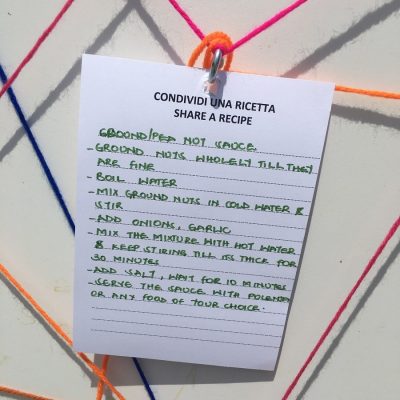 CONDIVIDI UNA RICETTA
SHARE A RECIPE
GROUND/PEA NOT SAUCE.
- GROUND NUTS WHOLELY TILL THEY
ARE FINE
- BOIL WATER
- MIX GROUND NUTS IN COLD WATER &
STIR
- ADD ONIONS, GARLIC
- MIX THE MIXTURE WITH HOT WATER
& KEEP STIRING TILL ITS THICK FOR
30 MINUTES
- ADD SALT, WAIT FOR 10 MINUTES
- SERVE THE SAUCE WITH POLENTA
OR ANY FOOD OF YOUR CHOICE.